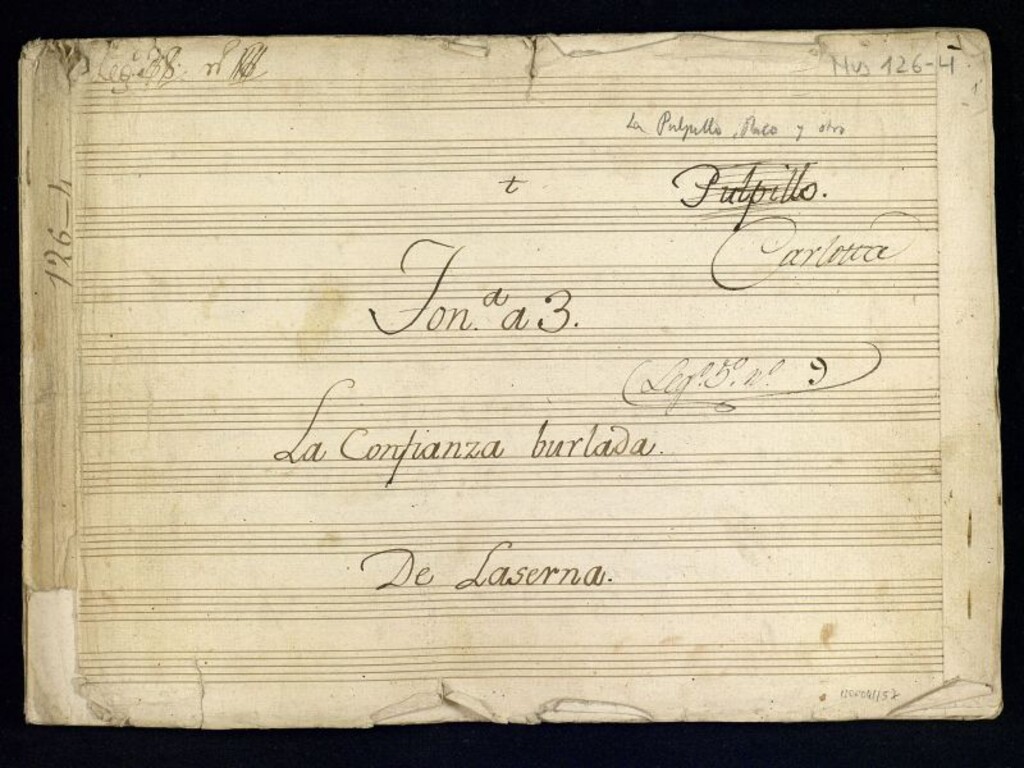 Leg.º 38. nº
Mus 126-4
La Pulpillo, Paco y otro
t
Pulpillo.
Carlota
126-4
Ton.ª a 3.
Leg.º 5.º n.º 9
La Confianza burlada.
De Laserna.